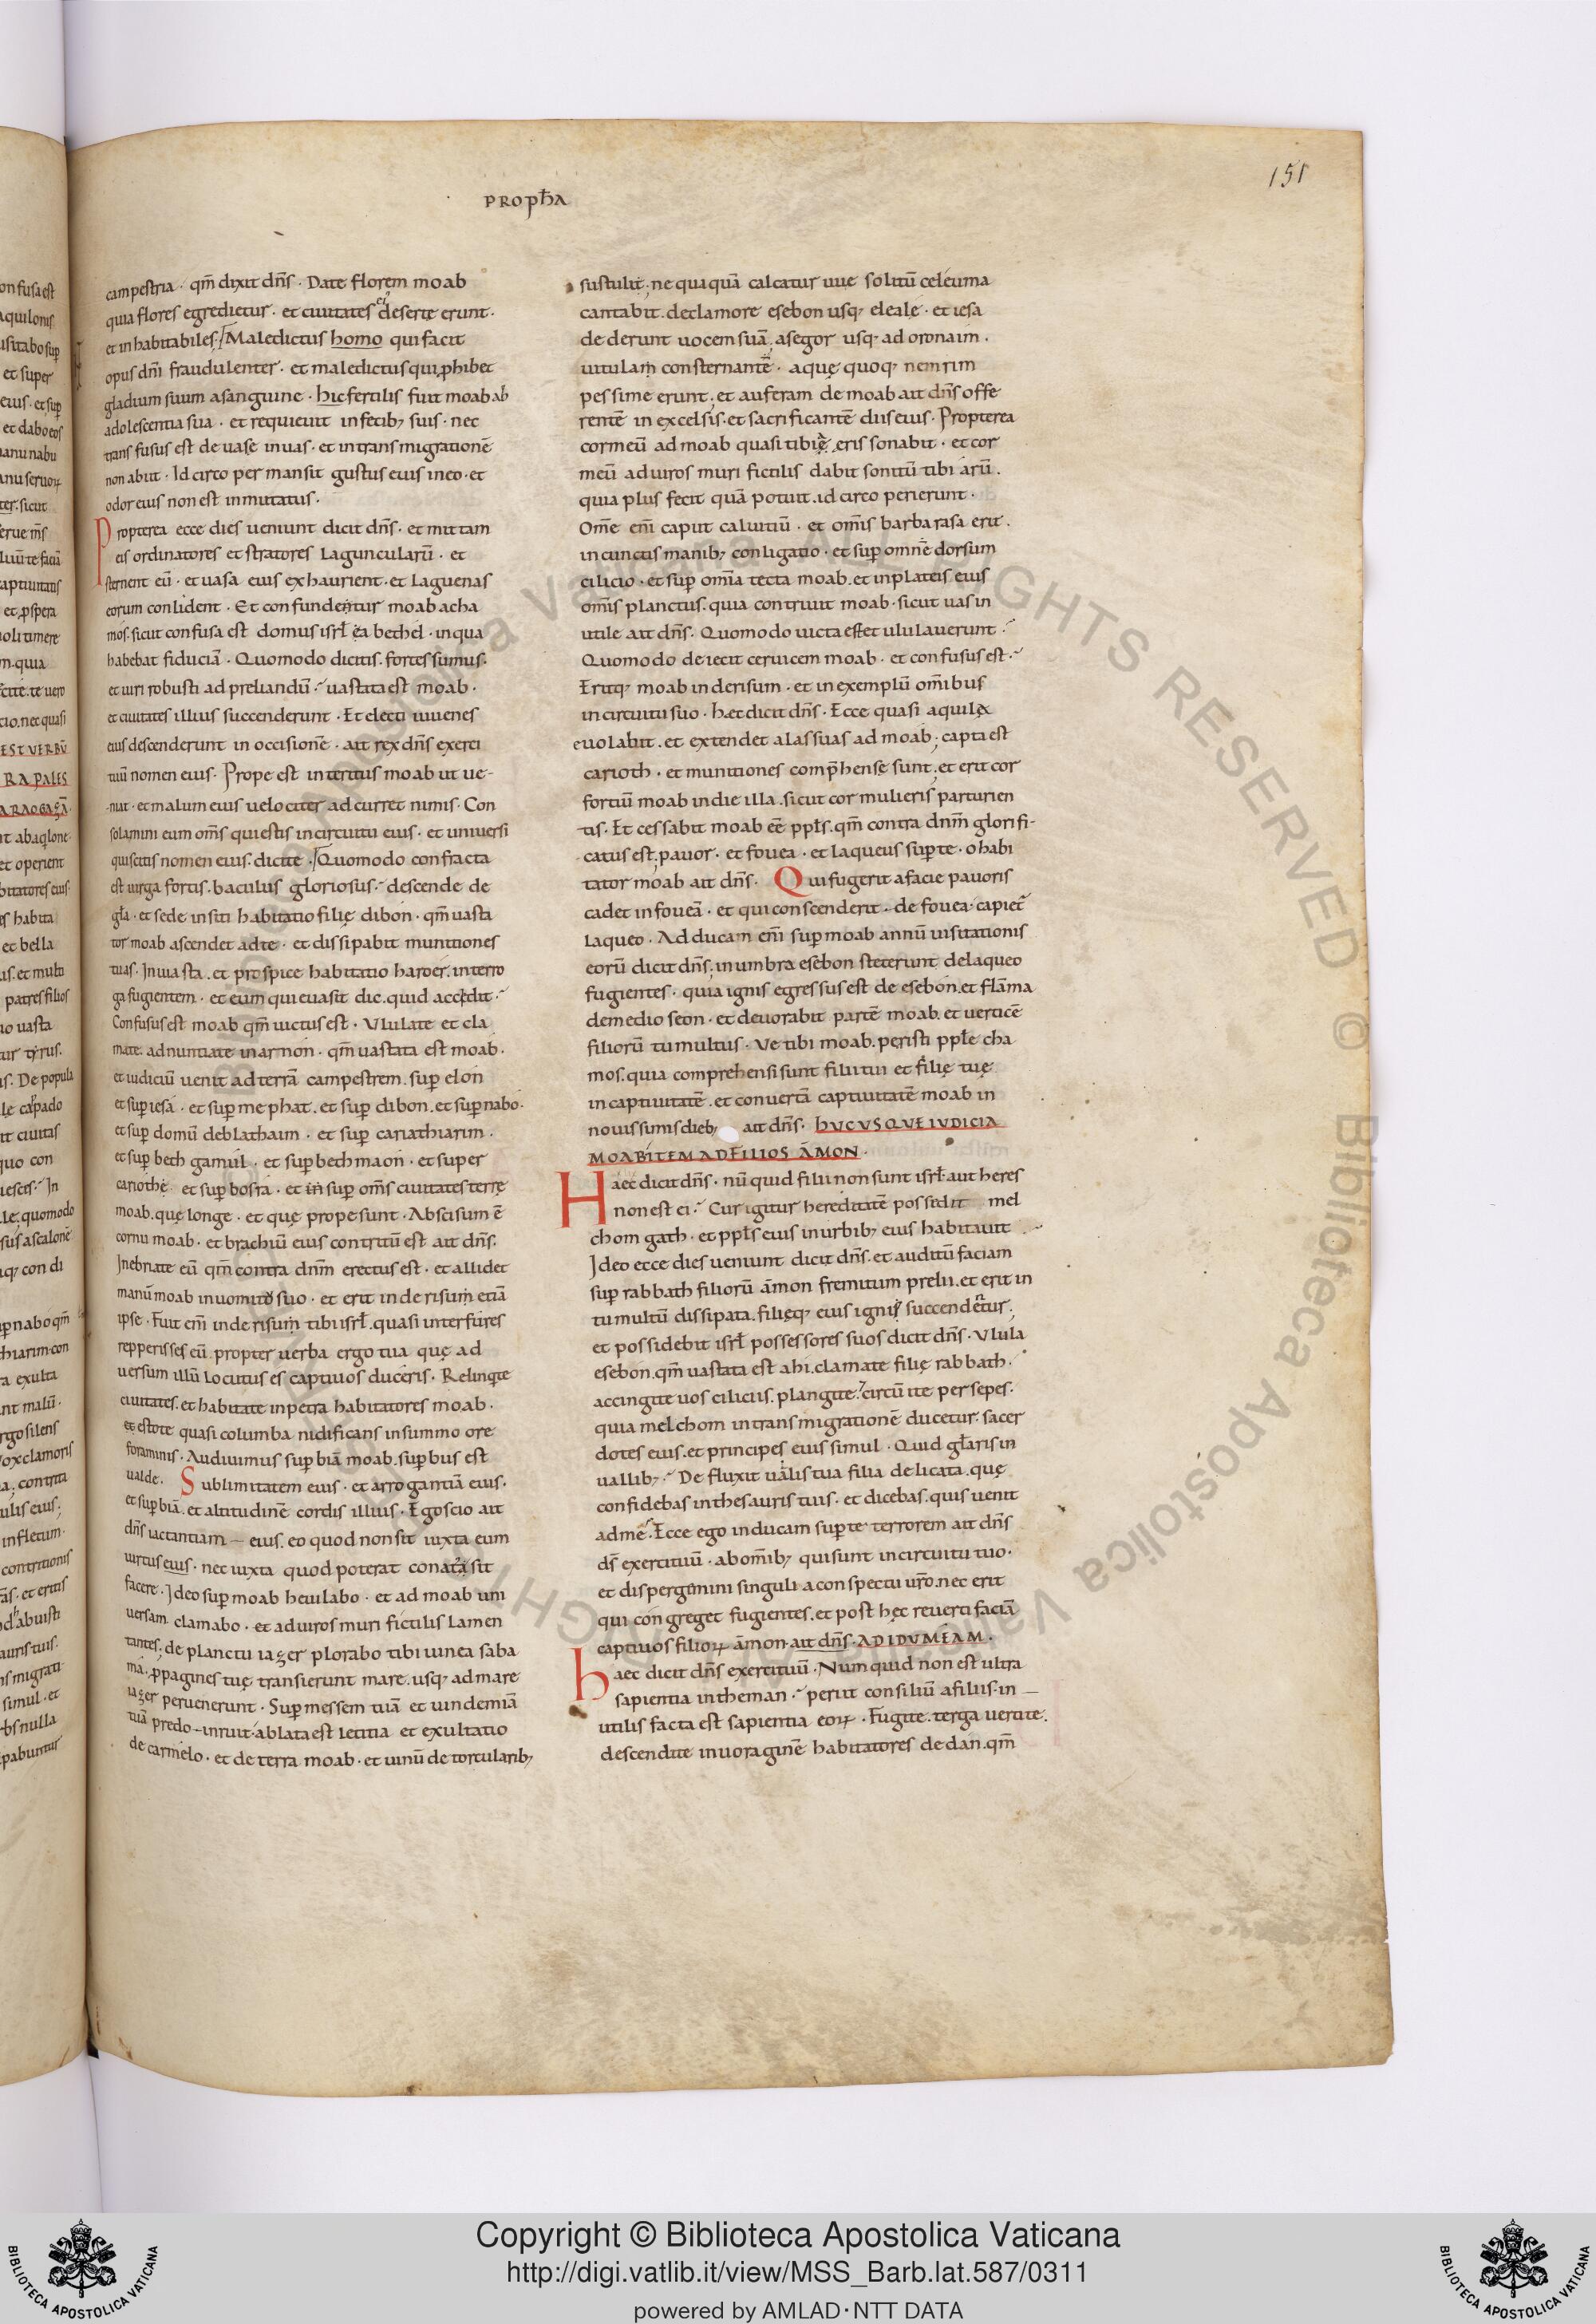 151
PROPħA
campestria · qm̄ dixit dn̄s · Date florem moab
quia flores egredietur · et ciuitates ei deserte erunt ·
et inhabitabiles; Maledictus homo qui facit
opus dn̄i fraudulenter · et maledictus qui ꝓhibet
gladium suum a sanguine · hic fertilis fuit moab ab
adolescentia sua · et requieuit in fecib; suis · nec
transfusus est de uase in uas · et in transmigrationē
non abiit · Idcirco permansit gustus eius in eo · et
odor eius non est inmutatus ·
Propterea ecce dies ueniunt dicit dn̄s · et mittam
eis ordinatores et stratores laguncularū · et
sternent eū · et uasa eius exhaurient · et laguenas
eorum conlident · Et confundentur moab a cha
mos · sicut confusa est domus isrł ęa bethel · in qua
habebat fiduciā · Quomodo dicitis · fortes sumus ·
et uiri robusti ad preliandū · uastata est moab ·
et ciuitates illius succenderunt · Et electi iuuenes
eius descenderunt in occisionē · ait rex dn̄s exerci
tiuū nomen eius · Prope est interitus moab ut ue-
niat · et malum eius uelociter adcurret nimis · Con
solamini eum om̄s qui estis in circuitu eius · et uniuersi
qui scitis nomen eius · dicite · Quomodo confracta
est uirga fortis · baculus gloriosus · descende de
gła · et sede in siti habitatio filię dibon · qm̄ uasta
tor moab ascendet ad te · et dissipabit munitiones
tuas · In uia sta · et prospice habitatio haroer · interro
ga fugientem · et eum qui euasit dic · quid accedit ·
Confusus est moab qm̄ uictus est · Vlulate et cla
mate · adnuntiate in arnon · qm̄ uastata est moab ·
et iudiciū uenit ad terrā campestrem · sup̄ elon
et sup̄ iesā · et sup̄ mephat · et sup̄ dibon · et sup̄ nabo ·
et sup̄ domū deblathaim · et sup̄ cariathiarim ·
et sup̄ beth gamul · et sup̄ bethmaon · et super
cariothę et sup̄ bosra · et in sup̄ om̄s ciuitates terrę
moab · quę longe · et quę prope sunt · Abscisum ē
cornu moab · et brachiū eius contritū est ait dn̄s ·
Inebriate eū qm̄ contra dn̄m erectus est · et allidet
manū moab in uomito suo · et erit in derisum etiā
ipse · Fuit em̄ in derisum tibi isrł · quasi inter fures
repperisses eū · propter uerba ergo tua quę ad
uersum illū locutus es captiuos duceris · Relinq̄te
ciuitates · et habitate in petra habitatores moab ·
et estote quasi columba nidificans in summo ore
foraminis · Audiuimus sup̄biā moab · sup̄bus est
ualde · Sublimitatem eius · et arrogantiā eius ·
et sup̄biā · et altitudinē cordis illius · Ego scio ait
dn̄s iactantiam — eius · eo quod non sit iuxta eum
uirtus eius · nec iuxta quod poterat conata sit
facere · Ideo sup̄ moab heiulabo · et ad moab uni
uersam clamabo · et ad uiros muri fictilis lamen
tantes; de planctu iazer plorabo tibi uinea saba
ma · ꝓpagines tuę transierunt mare · usq; ad mare
iazer peruenerunt · Sup̄ messem tuā et uindemiā
tuā predo inruit · ablata est letitia et exultatio
de carmelo · et de terra moab · et uinū de torcularib;
sustuli; nequaquā calcatur uue solitū celeuma
cantabit · de clamore esebon usq; eleale · et iesa
dederunt uocem suā; a segor usq; ad oronaim ·
uitulam consternantē · aquę quoq; nemrim
pessime erunt; et auferam de moab ait dn̄s offe
rentē in excelsis · et sacrificantē diis eius · Propterea
cor meū ad moab quasi tibię ęris sonabit · et cor
meū ad uiros muri fictilis dabit sonitū tibiarū ·
quia plus fecit quā potuit · idcirco perierunt ·
Om̄e em̄ caput caluitiū · et om̄is barba rasa erit ·
in cunctis manib; conligatio · et sup̄ omnē dorsum
cilicio · et sup̄ om̄ia tecta moab · et in plateis eius
om̄is planctus · quia contriui moab · sicut uas in
utile ait dn̄s · Quomodo uicta est et ululauerunt ·
Quomodo deiecit ceruicem moab · et confusus est ·
Eritq; moab in derisum · et in exemplū om̄ibus
in circuitu suo · hec dicit dn̄s · Ecce quasi aquila
euolabit · et extendet alas suas ad moab; capta est
carioth · et munitiones comp̄hense sunt; et erit cor
fortiū moab in die illa · sicut cor mulieris parturien
tis · Et cessabit moab eē ppłs · qm̄ contra dn̄m glorifi-
catus est; pauor · et fouea · et laqueus sup̄ te · o habi
tator moab ait dn̄s · Qui fugerit a facie pauoris
cadet in foueā · et qui conscenderit · de fouea · capiet̄
laqueo · Adducam em̄ sup̄ moab annū uisitationis
eorū dicit dn̄s; in umbra esebon steterunt de laqueo
fugientes · quia ignis egressus est de esebon · et flāma
de medio seon · et deuorabit partē moab · et uerticē
filiorū tumultus · Ve tibi moab · peristi ppłe cha
mos · quia comprehensi sunt filii tui et filię tuę
in captiuitatē · et conuertā captiuitatē moab in
nouissimis dieb; ait dn̄s · HVCVSQVE IVDICIA
MOAB ITEM AD FILIOS ĀMON ·
Haec dicit dn̄s · nū quid filii non sunt isrł · aut heres
non est ei · Cur igitur hereditatē possedit mel
chom gath · et ppłs eius in urbib; eius habitauit
Ideo ecce dies ueniunt dicit dn̄s · et auditū faciam
sup̄ rabbath filiorū āmon fremitum prelii · et erit in
tumultū dissipata · filięq; eius igni succendentur;
et possidebit isrł possessores suos dicit dn̄s · Vlula
esebon · qm̄ uastata est ahi · clamate filię rabbath ·
accingite uos ciliciis · plangite · circūite per sepes ·
quia melchom in transmigrationē ducetur · sacer
dotes eius · et principes eius simul · Quid głaris in
uallib; · Defluxit uallis tua filia delicata · quę
confidebas in thesauris tuis · et dicebas · quis ueniet
ad me · Ecce ego inducam sup̄ te terrorem ait dn̄s
ds̄ exercituū · ab om̄ib; qui sunt in circuitu tuo ·
et dispergemini singuli a conspectu ur̄o · nec erit
qui congreget fugientes · et post hęc reuerti faciā
captiuos filioꝝ āmon · ait dn̄s · AD IDVMEAM ·
haec dicit dn̄s exercituū · Numquid non est ultra
sapientia in theman · periit consiliū a filiis · in —
utilis facta est sapientia eoꝝ · Fugite · terga uertite ·
descendite in uoraginē habitatores dedan · qm̄
Copyright © Biblioteca Apostolica Vaticana
http://digi.vatlib.it/view/MSS_Barb.lat.587/0311
powered by AMLAD·NTT DATA
BIBLIOTECA APOSTOLICA VATICANA
BIBLIOTECA APOSTOLICA VATICANA